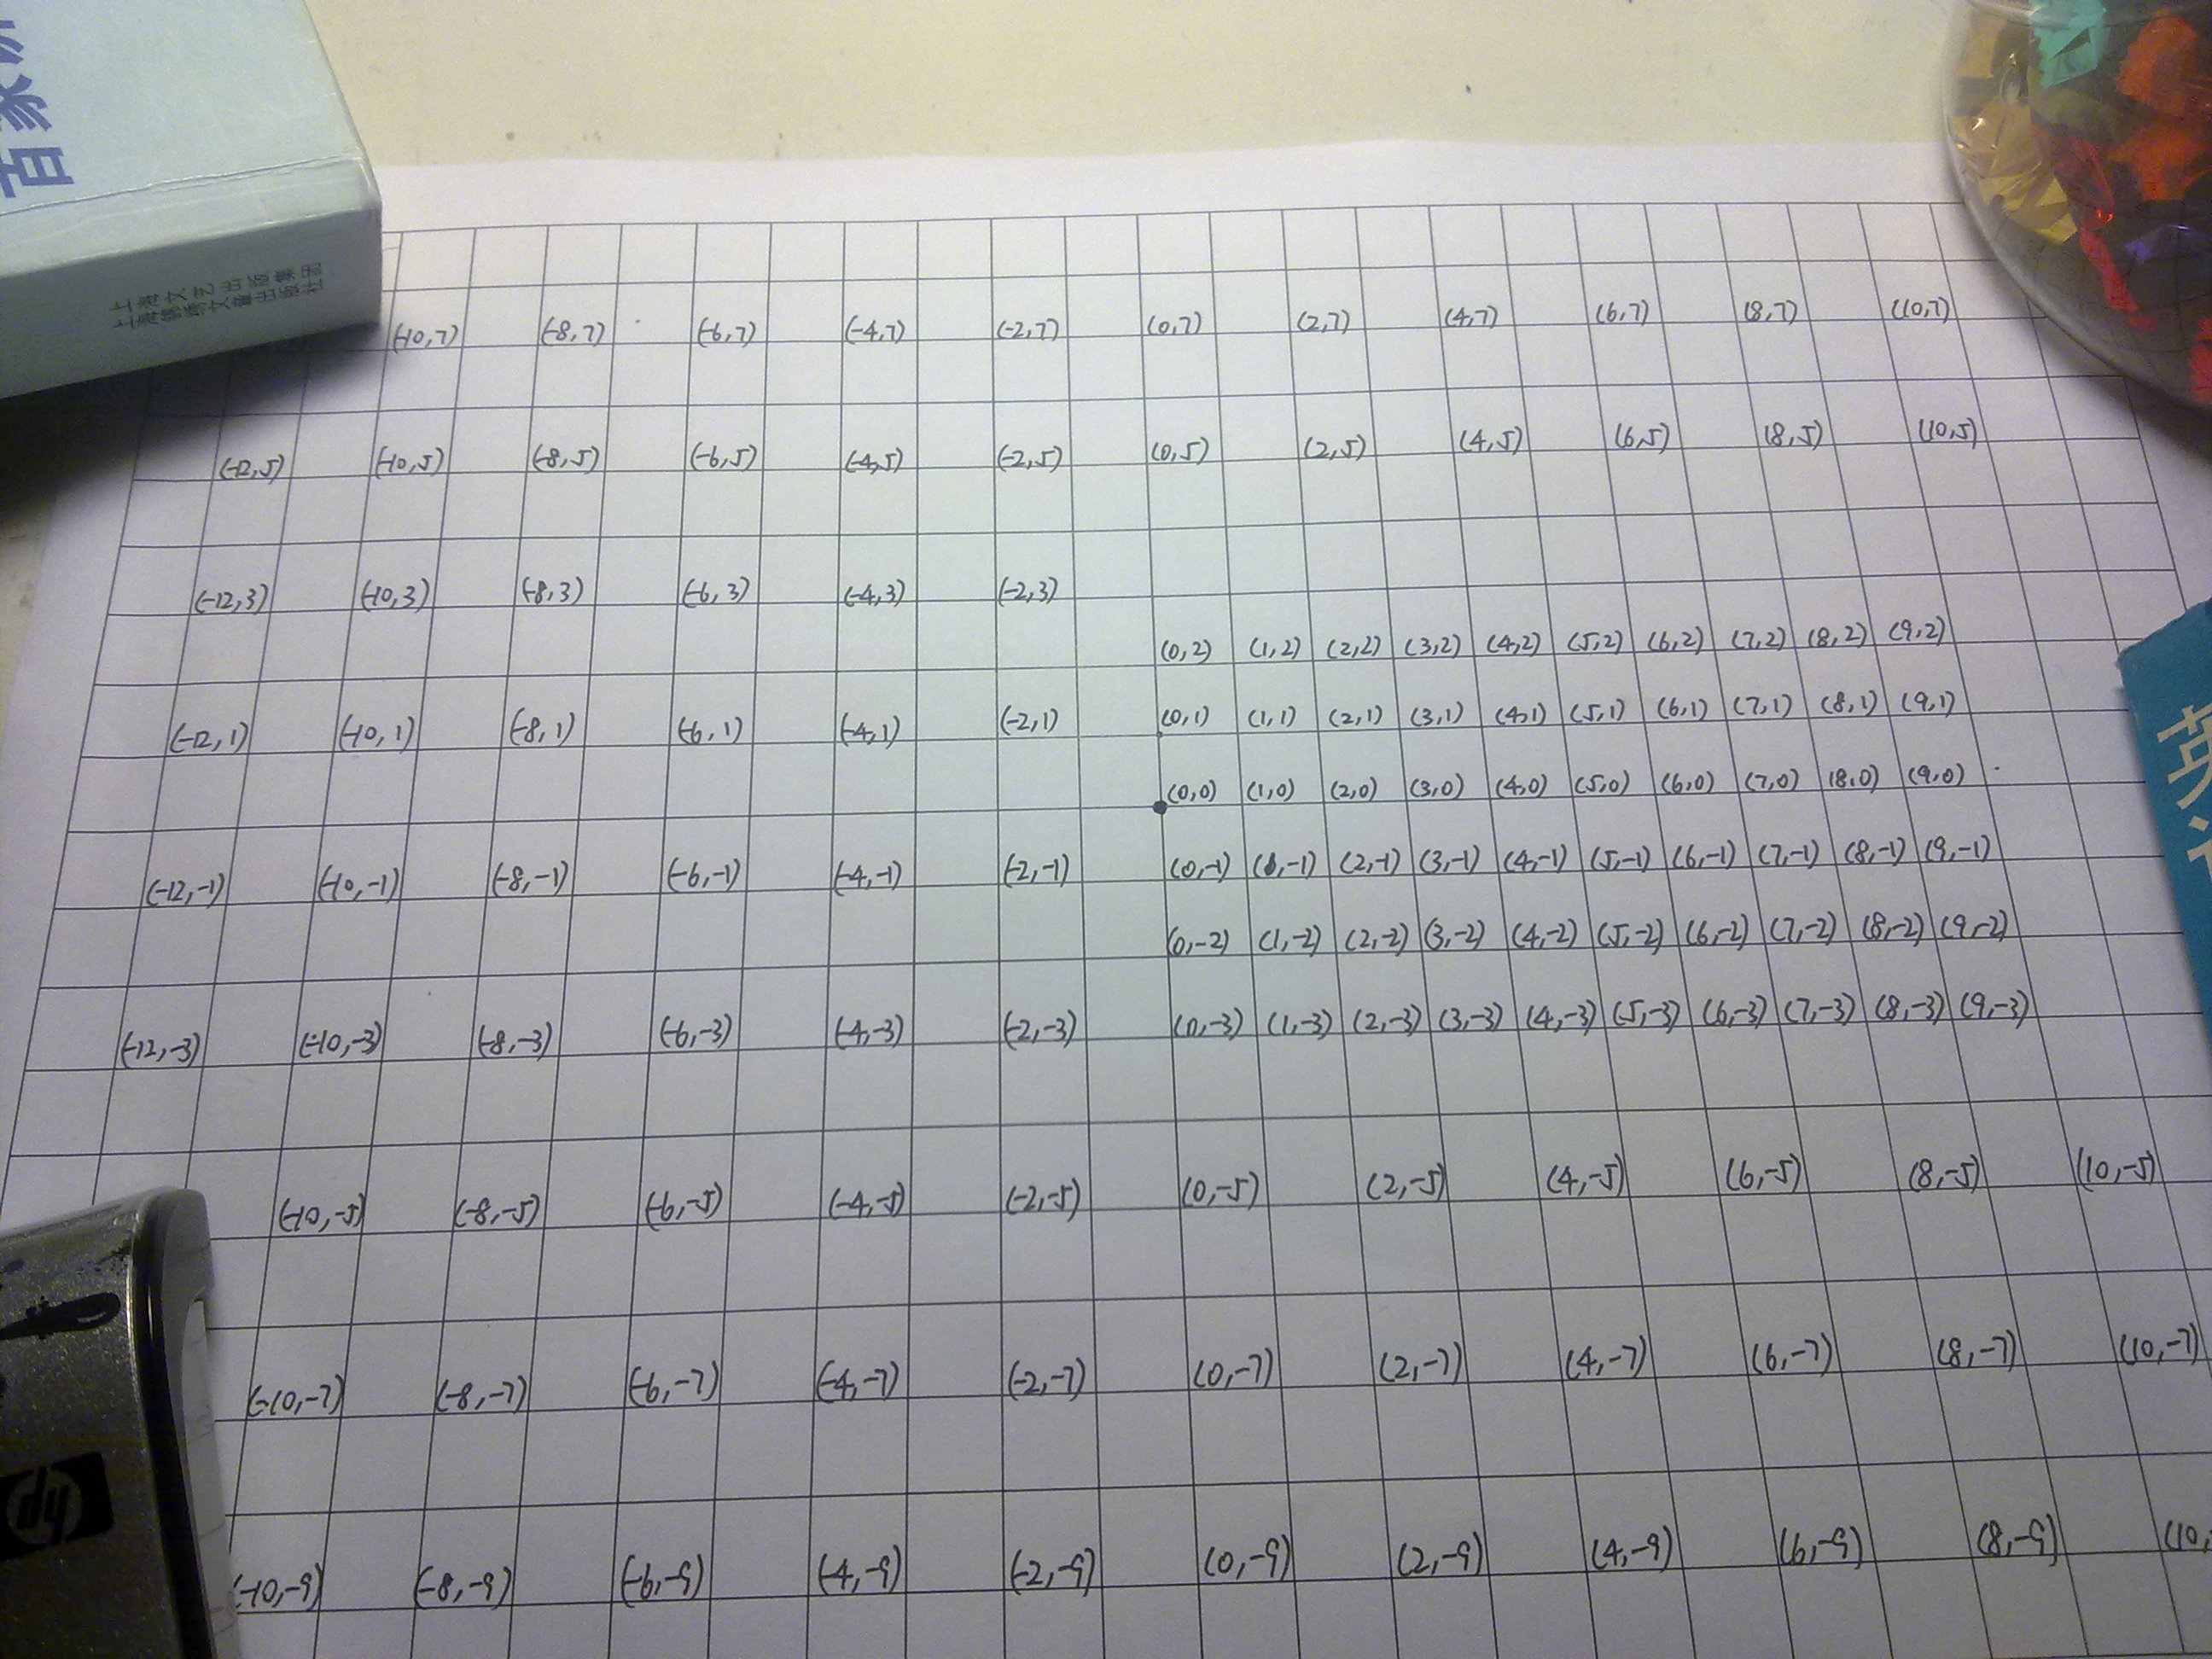 百家
上海文艺出版集团
上海锦绣文章出版社
(-10,7) (-8,7) (-6,7) (-4,7) (-2,7) (0,7) (2,7) (4,7) (6,7) (8,7) (10,7)
(-12,5) (-10,5) (-8,5) (-6,5) (-4,5) (-2,5) (0,5) (2,5) (4,5) (6,5) (8,5) (10,5)
(-12,3) (-10,3) (-8,3) (-6,3) (-4,3) (-2,3)
(0,2) (1,2) (2,2) (3,2) (4,2) (5,2) (6,2) (7,2) (8,2) (9,2)
(-12,1) (-10,1) (-8,1) (-6,1) (-4,1) (-2,1) (0,1) (1,1) (2,1) (3,1) (4,1) (5,1) (6,1) (7,1) (8,1) (9,1)
(0,0) (1,0) (2,0) (3,0) (4,0) (5,0) (6,0) (7,0) (8,0) (9,0)
(-12,-1) (-10,-1) (-8,-1) (-6,-1) (-4,-1) (-2,-1) (0,-1) (1,-1) (2,-1) (3,-1) (4,-1) (5,-1) (6,-1) (7,-1) (8,-1) (9,-1)
(0,-2) (1,-2) (2,-2) (3,-2) (4,-2) (5,-2) (6,-2) (7,-2) (8,-2) (9,-2)
(-12,-3) (-10,-3) (-8,-3) (-6,-3) (-4,-3) (-2,-3) (0,-3) (1,-3) (2,-3) (3,-3) (4,-3) (5,-3) (6,-3) (7,-3) (8,-3) (9,-3)
(-10,-5) (-8,-5) (-6,-5) (-4,-5) (-2,-5) (0,-5) (2,-5) (4,-5) (6,-5) (8,-5) (10,-5)
(-10,-7) (-8,-7) (-6,-7) (-4,-7) (-2,-7) (0,-7) (2,-7) (4,-7) (6,-7) (8,-7) (10,-7)
(-10,-9) (-8,-9) (-6,-9) (-4,-9) (-2,-9) (0,-9) (2,-9) (4,-9) (6,-9) (8,-9) (10,
英
hp